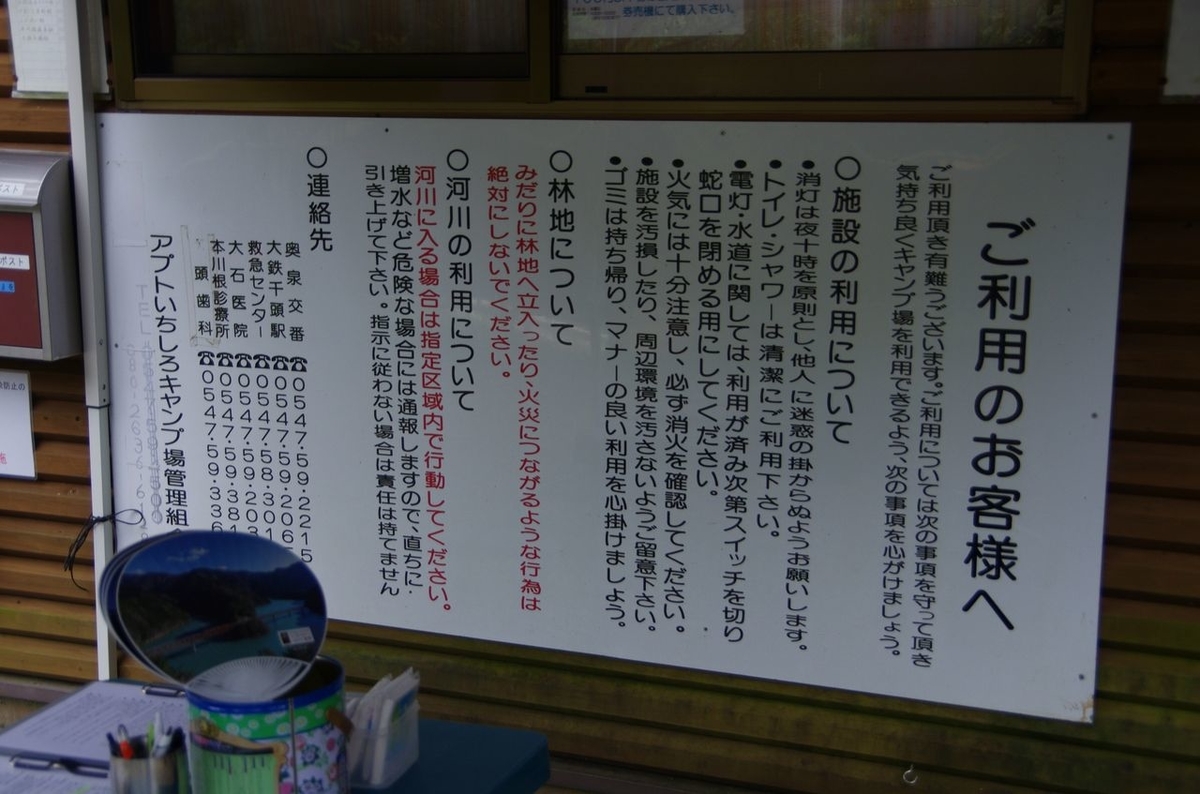 ご利用のお客様へ
ご利用頂き有難うございます。ご利用については次の事項を守って頂き
気持ち良くキャンプ場を利用できるよう、次の事項を心がけましょう。
○施設の利用について
●消灯は夜十時を原則とし、他人に迷惑の掛からぬようお願いします。
●トイレ・シャワーは清潔にご利用下さい。
●電灯・水道に関しては、利用が済み次第スイッチを切り
蛇口を閉める用にしてください。
●火気には十分注意し、必ず消火を確認してください。
●施設を汚損したり、周辺環境を汚さないようご留意下さい。
●ゴミは持ち帰り、マナーの良い利用を心掛けましょう。
○林地について
みだりに林地へ立入ったり、火災につながるような行為は
絶対にしないでください。
○河川の利用について
河川に入る場合は指定区域内で行動してください。
増水など危険な場合には通報しますので、直ちに・
引き上げて下さい。指示に従わない場合は責任は持てません
○連絡先
奥泉交番 ☎0547-59-2215
大鉄千頭駅 ☎0547-59-206
救急センター ☎0547-58-301
大石医院 ☎0547-59-203
本川根診療所 ☎0547-59-381
頭歯科 ☎0547-59-336
アプトいちしろキャンプ場管理組
券売機にて購入下さい。
ポスト